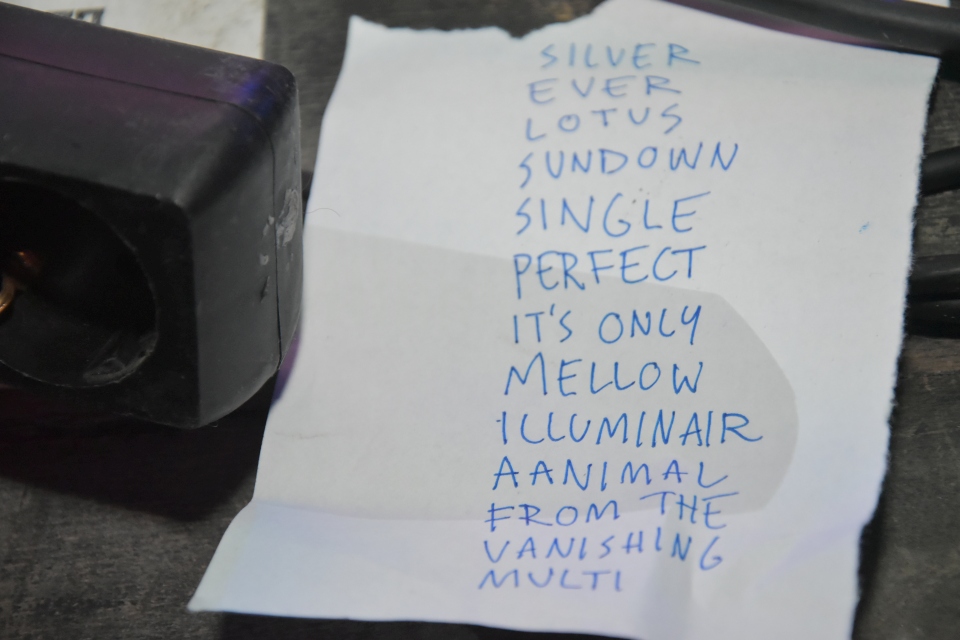 SILVER
EVER
LOTUS
SUNDOWN
SINGLE
PERFECT
IT'S ONLY
MELLOW
ILLUMINAIR
AANIMAL
FROM THE
VANISHING
MULTI